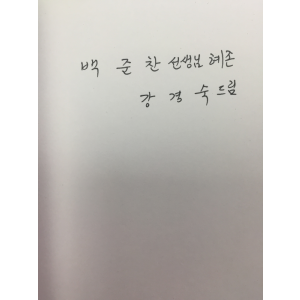 백 준 찬 선생님 혜존
강 경 숙 드림